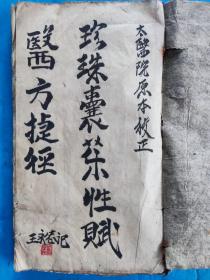 太醫院原本校正
珍珠囊药性賦
醫方捷徑
王永
记